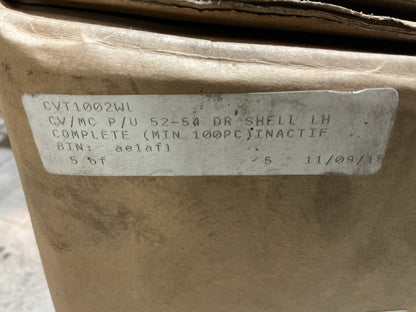 CVT1002WL
CV/MC P/U 52-54 DR SHELL LH
COMPLETE (MIN 100PC)INACTIF
BIN: ae1af1
5 of 5 - 11/09/15